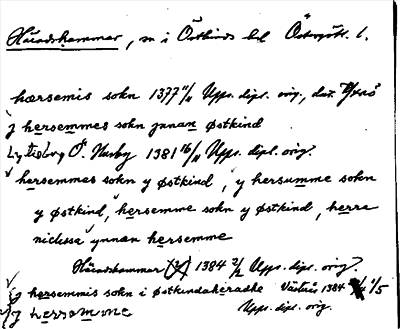 Häradshammar, sn i Östkinds hd Östergötl. l.
hærsemis sokn 1377 11/11 Upps. dipl. orig., dat.
j hersemmes sokn jnnan østkind
Ö. Husby 1381 16/11 Upps. dipl. orig.
hersemmes sokn y østkind, y hersumme sokn
y østkind, hersemme sokn y østkind, herra
niclissa ynnan hersemme
Häradshammar (3/2) 1384 2/2 Upps. dipl. orig.
j hersemmis sokn i østkindahæradhe Västnäs 1384 1/5
j hersomme Upps. dipl. orig.